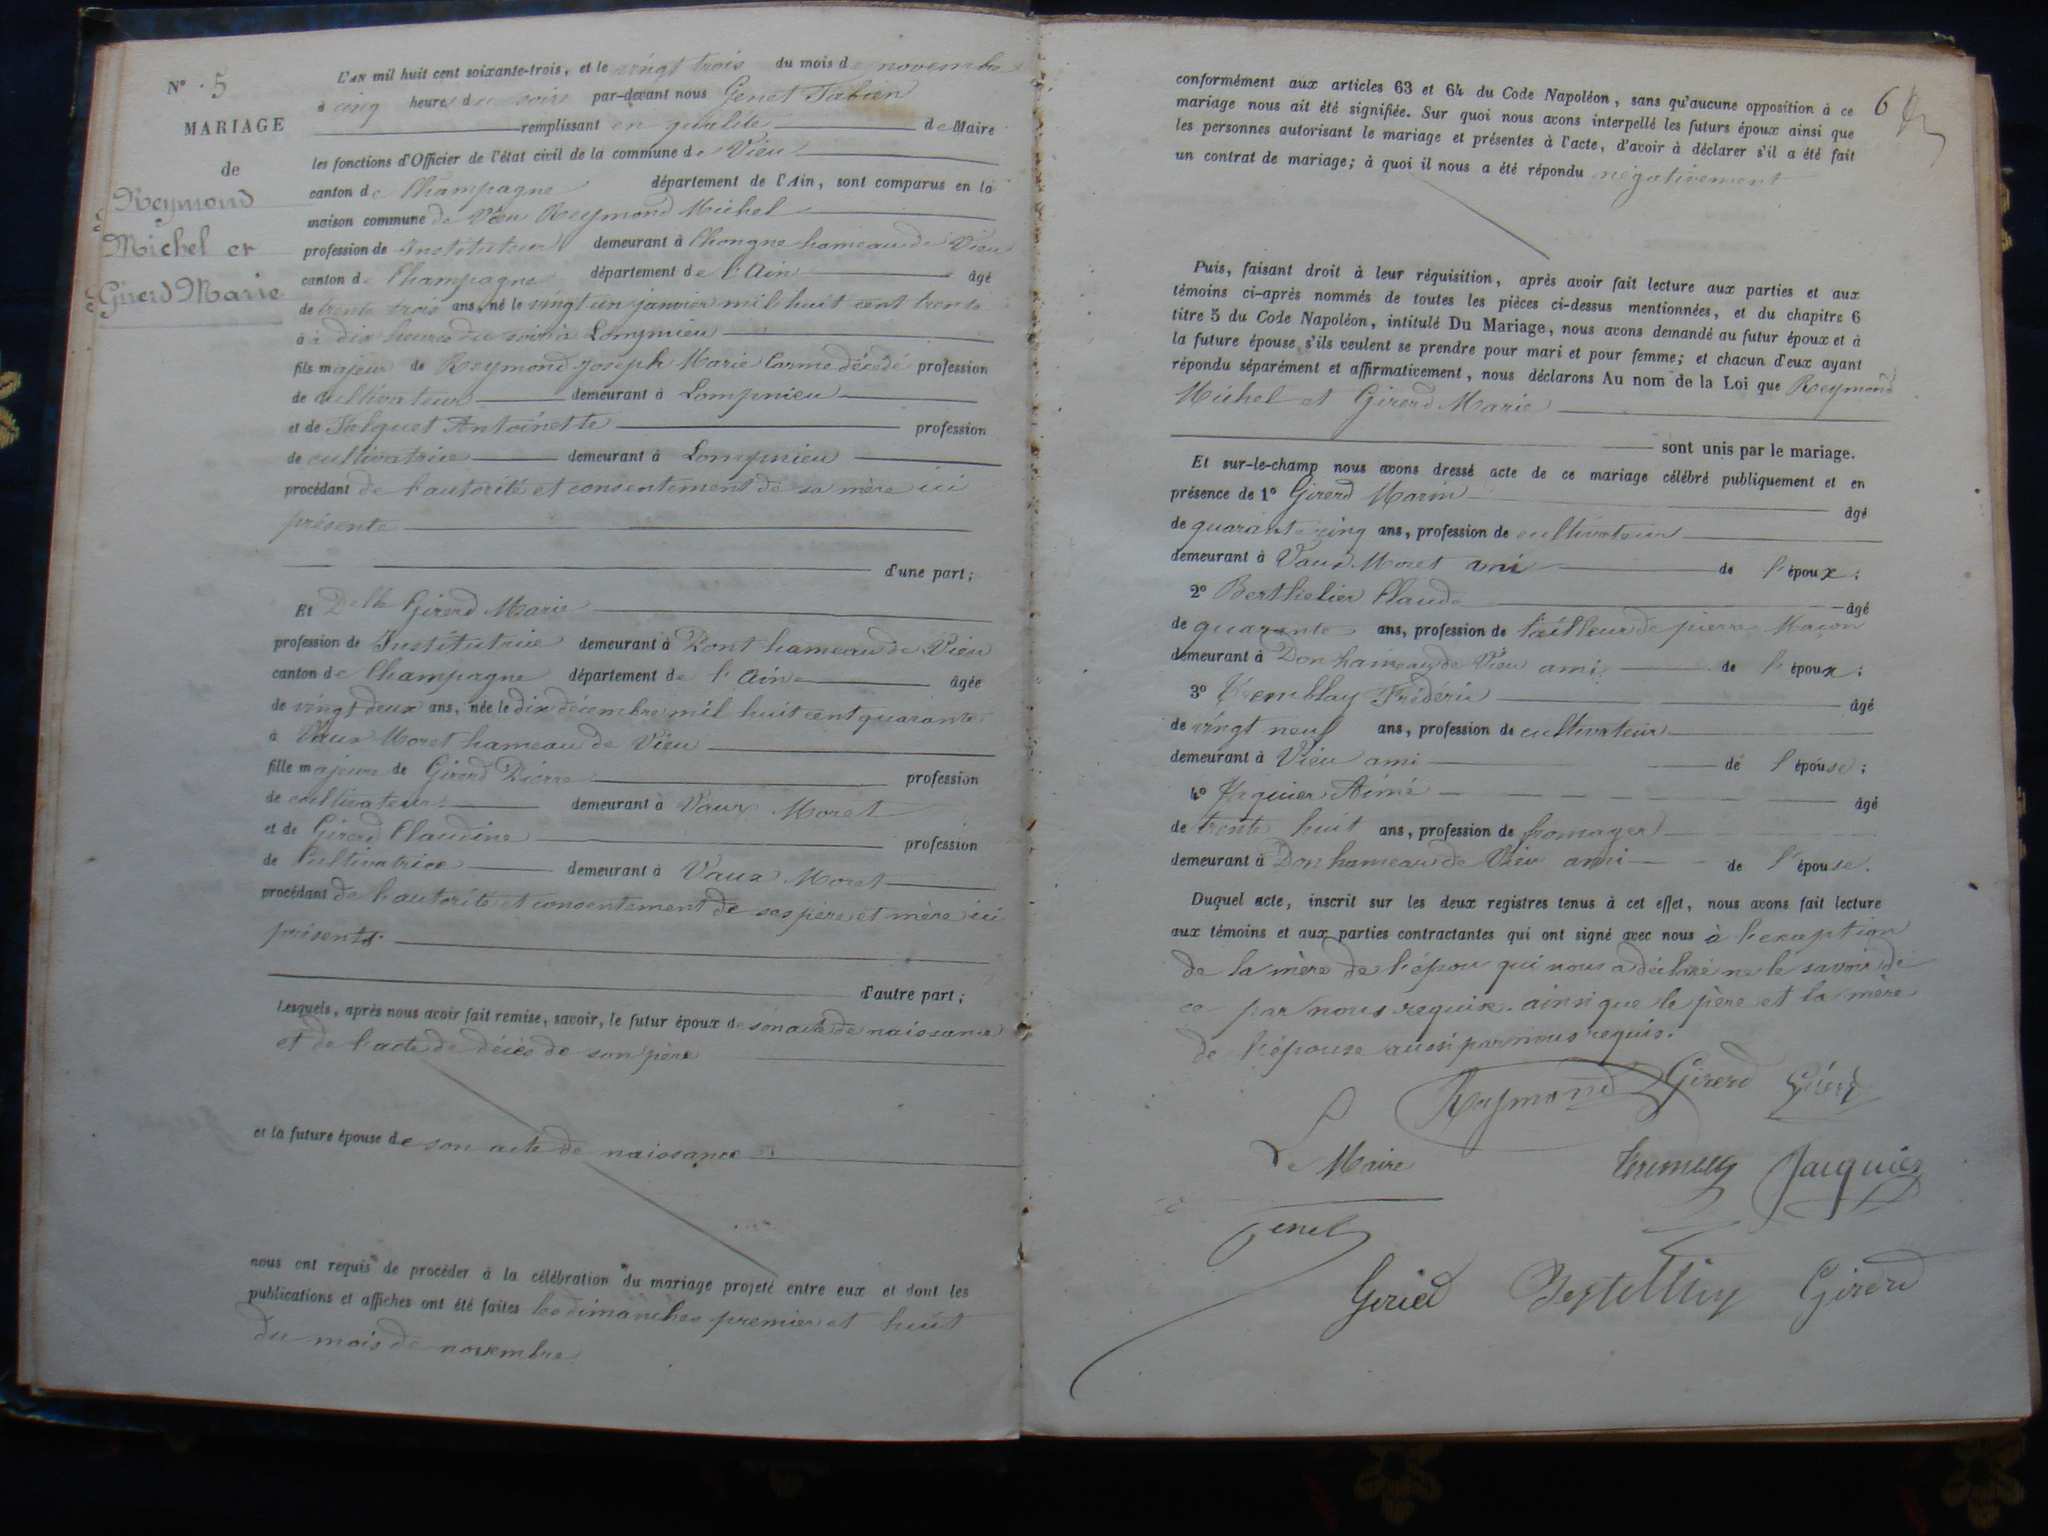 N° 5
MARIAGE
de
Reymond
Michel et
Girerd Marie
L'AN mil huit cent soixante-trois, et le vingt trois du mois de novembre
à cinq heures du soir par-devant nous Genet Fabien
remplissant en qualité de Maire
les fonctions d'Officier de l'état civil de la commune de Vieu
canton de Champagne département de l'Ain, sont comparus en la
maison commune de Vieu Reymond Michel
profession de Instituteur demeurant à Chongne hameau de Vieu
canton de Champagne département de l'Ain âgé
de trente trois ans, né le vingt un janvier mil huit cent trente
à à dix heures du soir à Lompnieu
fils majeur de Reymond Joseph Marie Carme décédé profession
de cultivateur demeurant à Lompnieu
et de Falquet Antoinette profession
de cultivatrice demeurant à Lompnieu
procédant de l'autorité et consentement de sa mère ici
présente
d'une part;
Et Delle Girerd Marie
profession de Institutrice demeurant à Dont hameau de Vieu
canton de Champagne département de l'Ain âgée
de vingt deux ans, née le dix décembre mil huit cent quarante
à Vaux Moret hameau de Vieu
fille majeure de Girerd Pierre profession
de cultivateur demeurant à Vaux Moret
et de Girerd Claudine profession
de Cultivatrice demeurant à Vaux Moret
procédant de l'autorité et consentement de ses père et mère ici
présents
d'autre part;
Lesquels, après nous avoir fait remise, savoir, le futur époux de son acte de naissance
et de l'acte de décès de son père
et la future épouse de son acte de naissance
nous ont requis de procéder à la célébration du mariage projeté entre eux et dont les
publications et affiches ont été faites les dimanches premier et huit
du mois de novembre
6
conformément aux articles 63 et 64 du Code Napoléon, sans qu'aucune opposition à ce
mariage nous ait été signifiée. Sur quoi nous avons interpellé les futurs époux ainsi que
les personnes autorisant le mariage et présentes à l'acte, d'avoir à déclarer s'il a été fait
un contrat de mariage; à quoi il nous a été répondu négativement
Puis, faisant droit à leur réquisition, après avoir fait lecture aux parties et aux
témoins ci-après nommés de toutes les pièces ci-dessus mentionnées, et du chapitre 6
titre 5 du Code Napoléon, intitulé Du Mariage, nous avons demandé au futur époux et à
la future épouse s'ils veulent se prendre pour mari et pour femme; et chacun d'eux ayant
répondu séparément et affirmativement, nous déclarons Au nom de la Loi que Reymond
Michel et Girerd Marie
sont unis par le mariage.
Et sur-le-champ nous avons dressé acte de ce mariage célébré publiquement et en
présence de 1° Girerd Marin âgé
de quarante cinq ans, profession de cultivateur
demeurant à Vaux Moret ami de l'époux;
2° Berthelier Claude âgé
de quarante ans, profession de tailleur de pierre Maçon
demeurant à Don hameau de Vieu ami de l'époux;
3° Tremblay Frédéric âgé
de vingt neuf ans, profession de cultivateur
demeurant à Vieu ami de l'épouse;
4° Aimé âgé
de trente huit ans, profession de fromager
demeurant à Don hameau de Vieu ami de l'épouse.
Duquel acte, inscrit sur les deux registres tenus à cet effet, nous avons fait lecture
aux témoins et aux parties contractantes qui ont signé avec nous à l'exception
de la mère de l'épou qui nous a déclaré ne le savoir de
ce par nous requise. ainsi que le père et la mère
de l'épouse aussi par nous requis.
Reymond Girerd
Le Maire Jacquier
Genet
Girerd Girerd